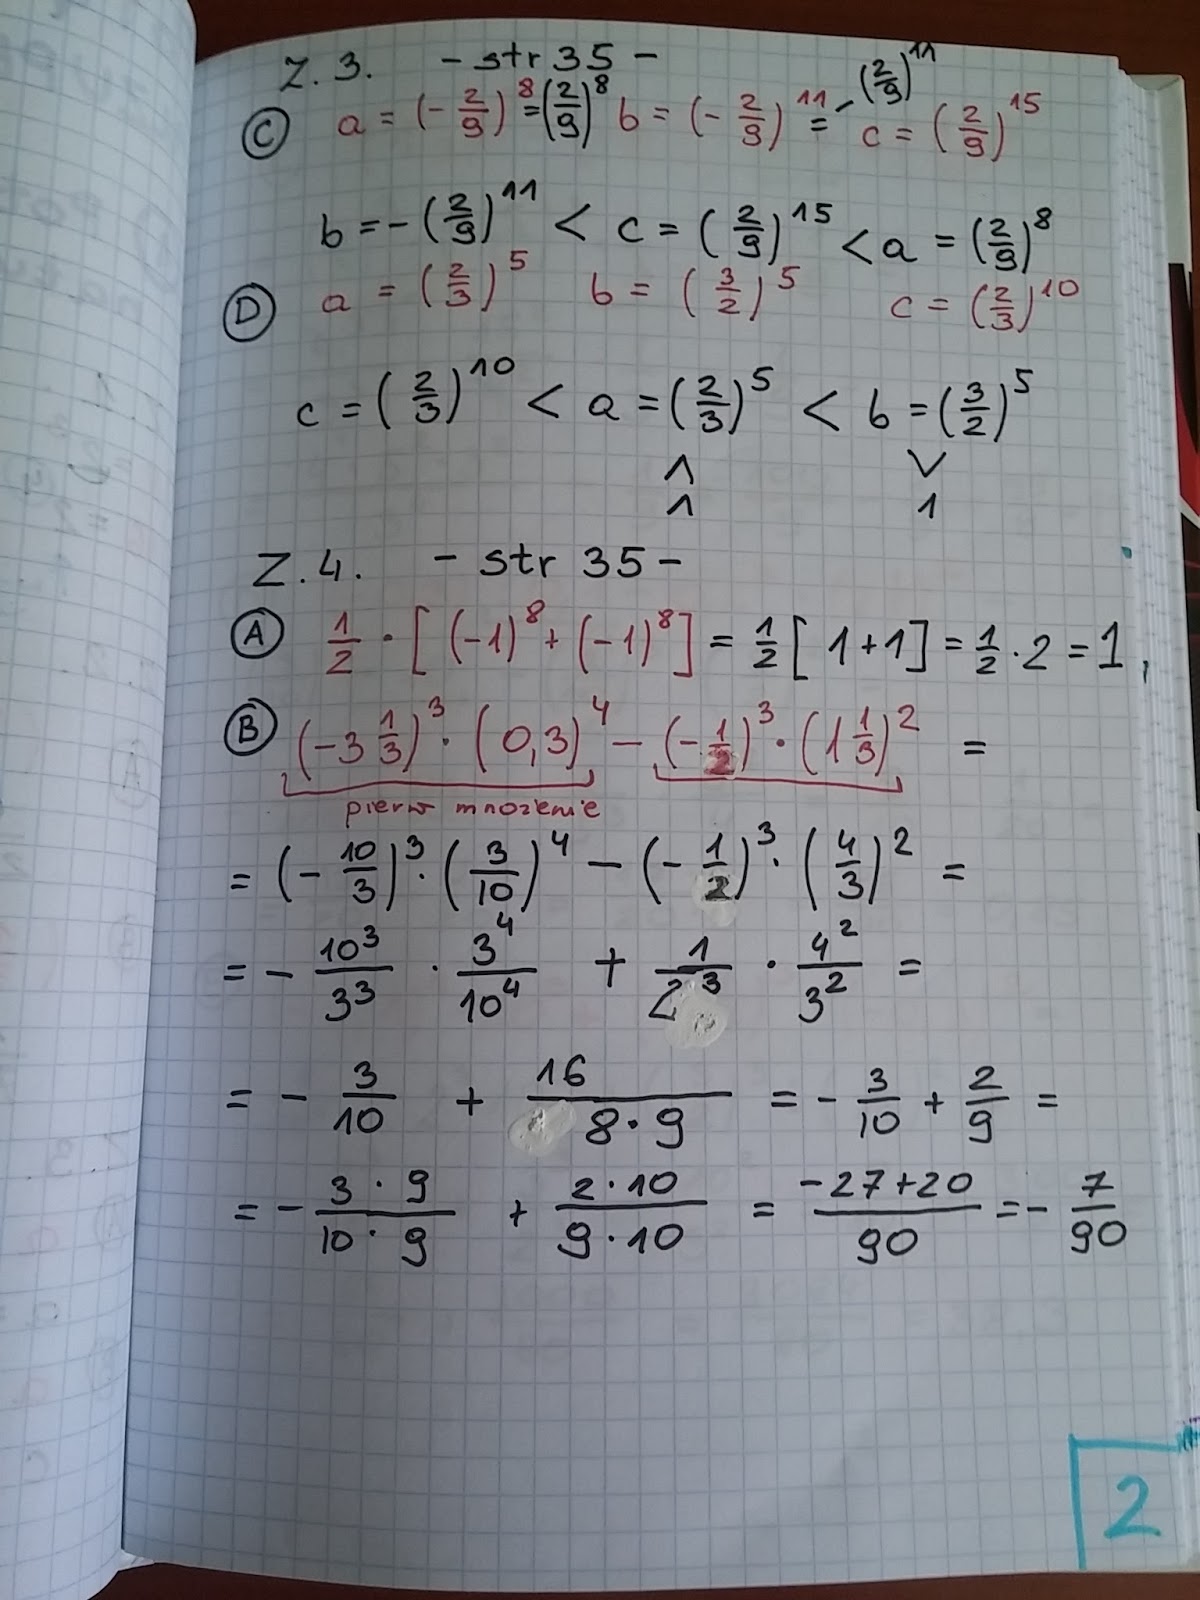 Z.3. - str 35 -
C a = (-2/9)^8 = (2/9)^8 b = (-2/9)^11 = -(2/9)^11 c = (2/9)^15
b = -(2/9)^11 < c = (2/9)^15 < a = (2/9)^8
D a = (2/3)^5 b = (3/2)^5 c = (2/3)^10
c = (2/3)^10 < a = (2/3)^5 < b = (3/2)^5
∧ ∨
1 1
Z.4. - str 35 -
A 1/2 · [(-1)^8 + (-1)^8] = 1/2 [1+1] = 1/2 · 2 = 1,
B (-3 1/3)^3 · (0,3)^4 - (-1/2)^3 · (1 1/3)^2 =
pierw mnożenie
= (-10/3)^3 · (3/10)^4 - (-1/2)^3 · (4/3)^2 =
= - 10^3/3^3 · 3^4/10^4 + 1/2^3 · 4^2/3^2 =
= - 3/10 + 16/8·9 = - 3/10 + 2/9 =
= - 3·9/10·9 + 2·10/9·10 = -27+20/90 = - 7/90
2